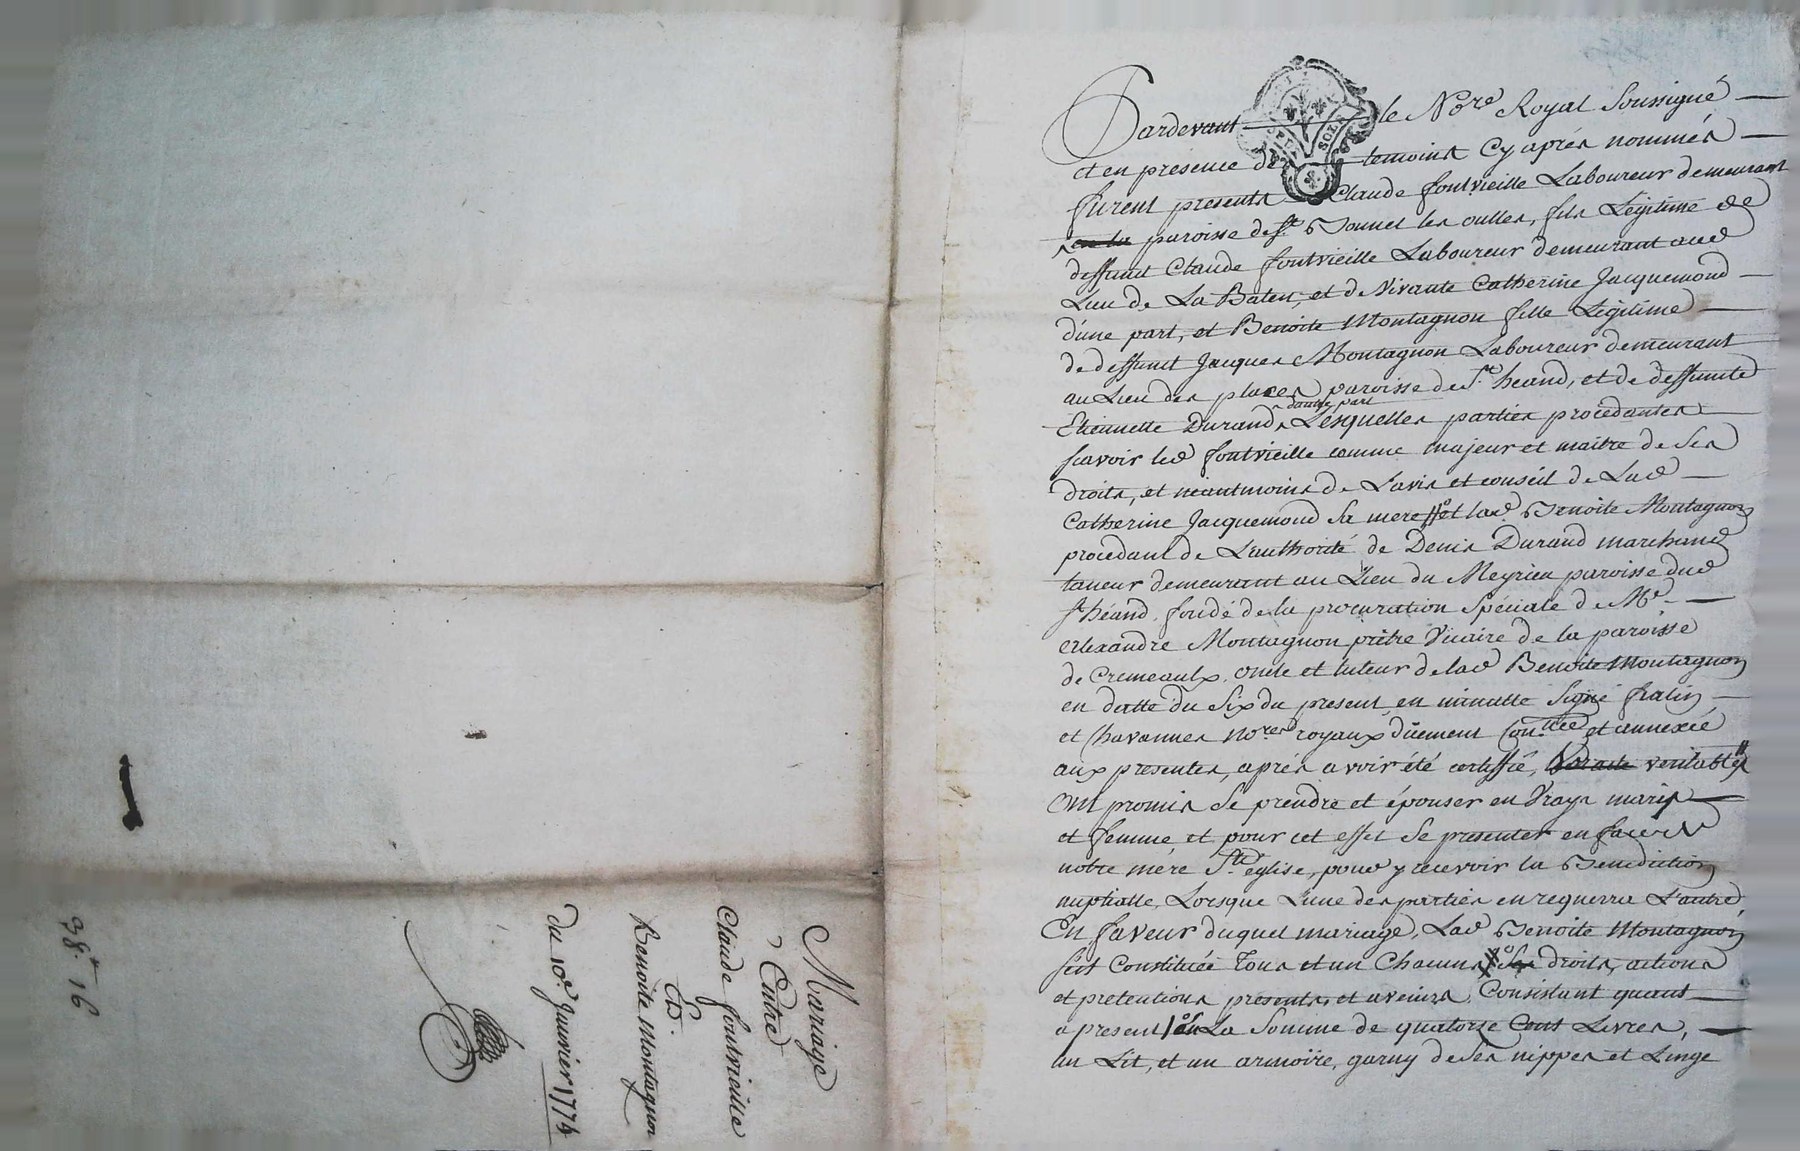 Mariage
Entre
Claude fontvieille
Et
Benoite Montagnon
du 10e Janvier 1774
38. 16
Pardevant le Nore Royal Soussigné
et en présence de temoins Cy après nommés
furent presents Claude fontvieille Laboureur demeurant
en la paroisse de St Bonnet les oulles, fils Légitime de
deffunt Claude fontvieille Laboureur demeurant aud
Lieu de La Baten, et de Vivante Catherine Jacquemond
d'une part, et Benoite Montagnon fille Légitime
de deffunt Jacques Montagnon Laboureur demeurant
au Lieu des places paroisse de St heand, et de deffunte
Etiennette Durand, d'autre part Lesquelles parties procedantes
scavoir led fontvieille comme majeur et maitre de ses
droits, et néantmoins de Lavis et conseil de Lad
Catherine Jacquemond sa mere et lad Benoite Montagnon
procedant de L'authorité de Denis Durand marchand
taneur demeurant au Lieu du Meyrieu paroisse dud
St héand, fondé de la procuration Spéciale de Me
Alexandre Montagnon prêtre Vicaire de la paroisse
de Cremeaulx, oncle et tuteur de lad Benoite Montagnon
en datte du Six du present en minutte Signé fratin
et Chavannes nores royaux düement Contlée et annexée
aux presentes, après avoir été certiffié, veritable
Ont promis Se prendre et épouser en Vrays maris
et femme, et pour cet effet Se presenter en face de
notre mére Ste église, pour y recevoir la Benediction
nuptialle, Lorsque L'une des parties en requerra L'autre,
En faveur duquel mariage, Lad Benoite Montagnon
sest Constituée Tous et un Chacuns Ses droits, actions
et pretentions presents, et avenirs, Consistant quant
a present en La Somme de quatorze Cent Livres,
un Lit, et un armoire, garny de Ses nippes et Linge